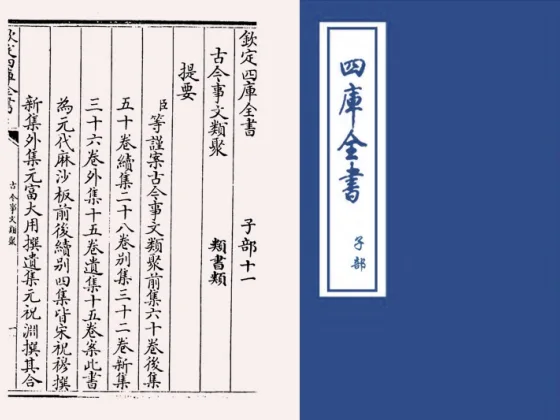 欽定四庫全書 子部十一
古今事文類聚 類書類
提要
臣等謹案古今事文類聚前集六十卷後集
五十卷續集二十八卷別集三十二卷新集
三十六卷外集十五卷遺集十五卷案此書
為元代麻沙板前後續别四集皆宋祝穆撰
新集外集元富大用撰遺集元祝淵撰其合
欽定四庫全書
古今事文類聚
一
四庫全書
子部